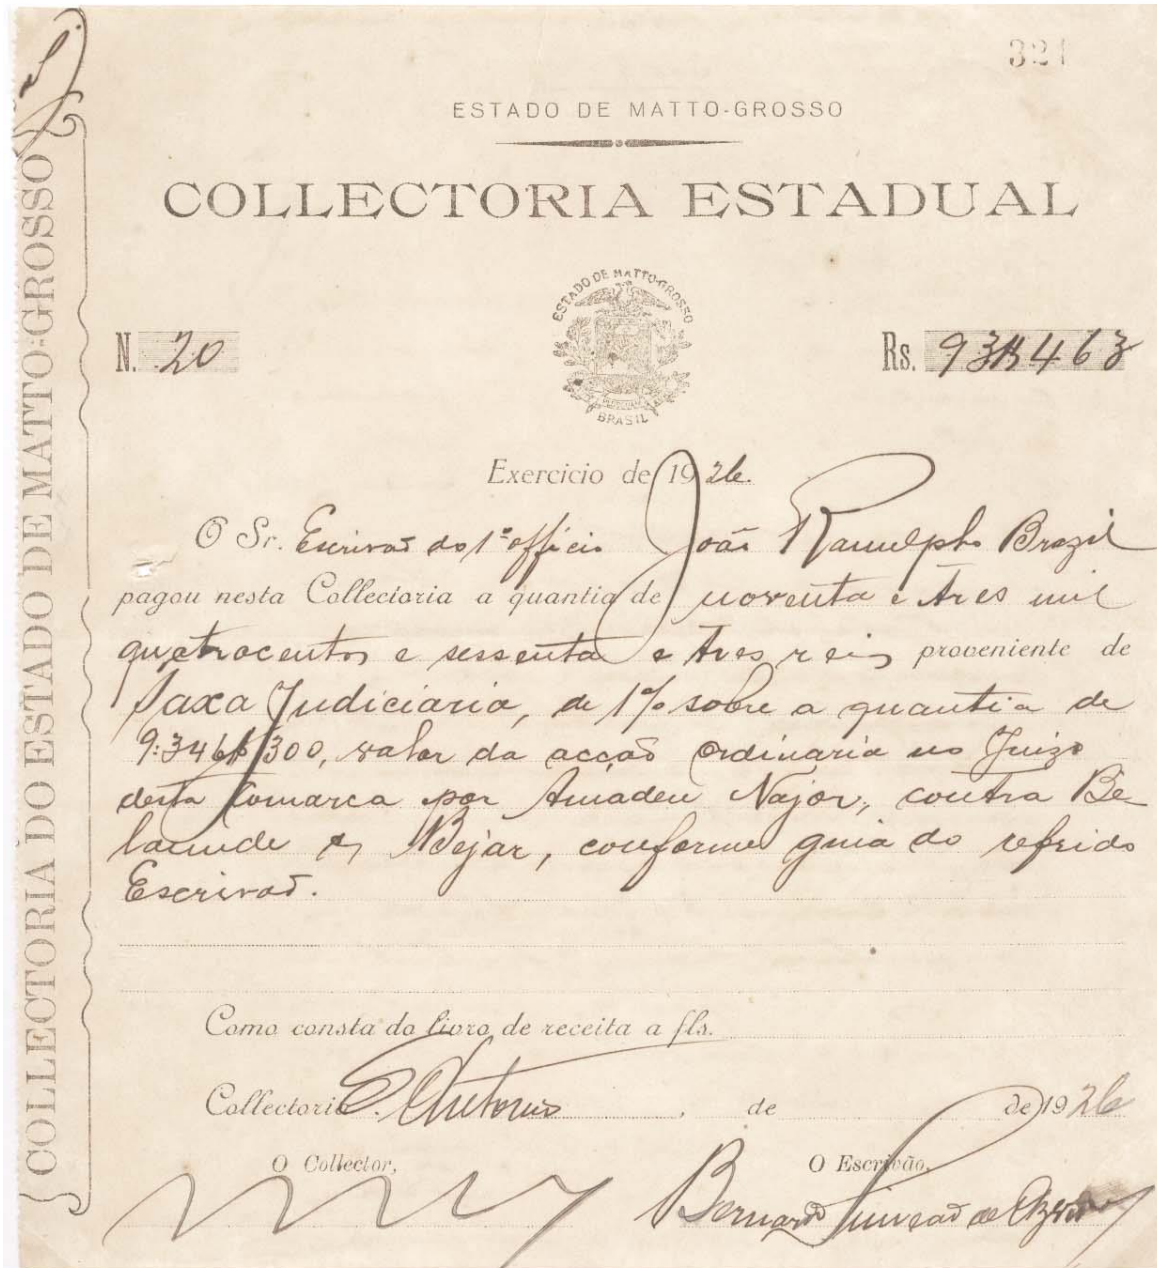 321
ESTADO DE MATTO-GROSSO
COLLECTORIA ESTADUAL
ESTADO DE MATTO-GROSSO
BRASIL
N. 20
Rs. 93$463
Exercicio de 1926.
O Sr. Escrivaõ do 1º officio João Ranulpho Brazil
pagou nesta Collectoria a quantia de noventa e tres mil
quatrocentos e sessenta e tres reis proveniente de
Taxa Judiciaria, de 1% sobre a quantia de
9:346$300, valor da acçaõ ordinaria no Juizo
desta Comarca por Amadeu Najor, contra Be-
launde & Bejar, conforme guia do refrido
Escrivaõ.
Como consta do livro de receita a fls.
Collectoria S. Antonio, de de 1926
O Collector,
O Escrivão,
Bernardo
COLLECTORIA DO ESTADO DE MATTO-GROSSO